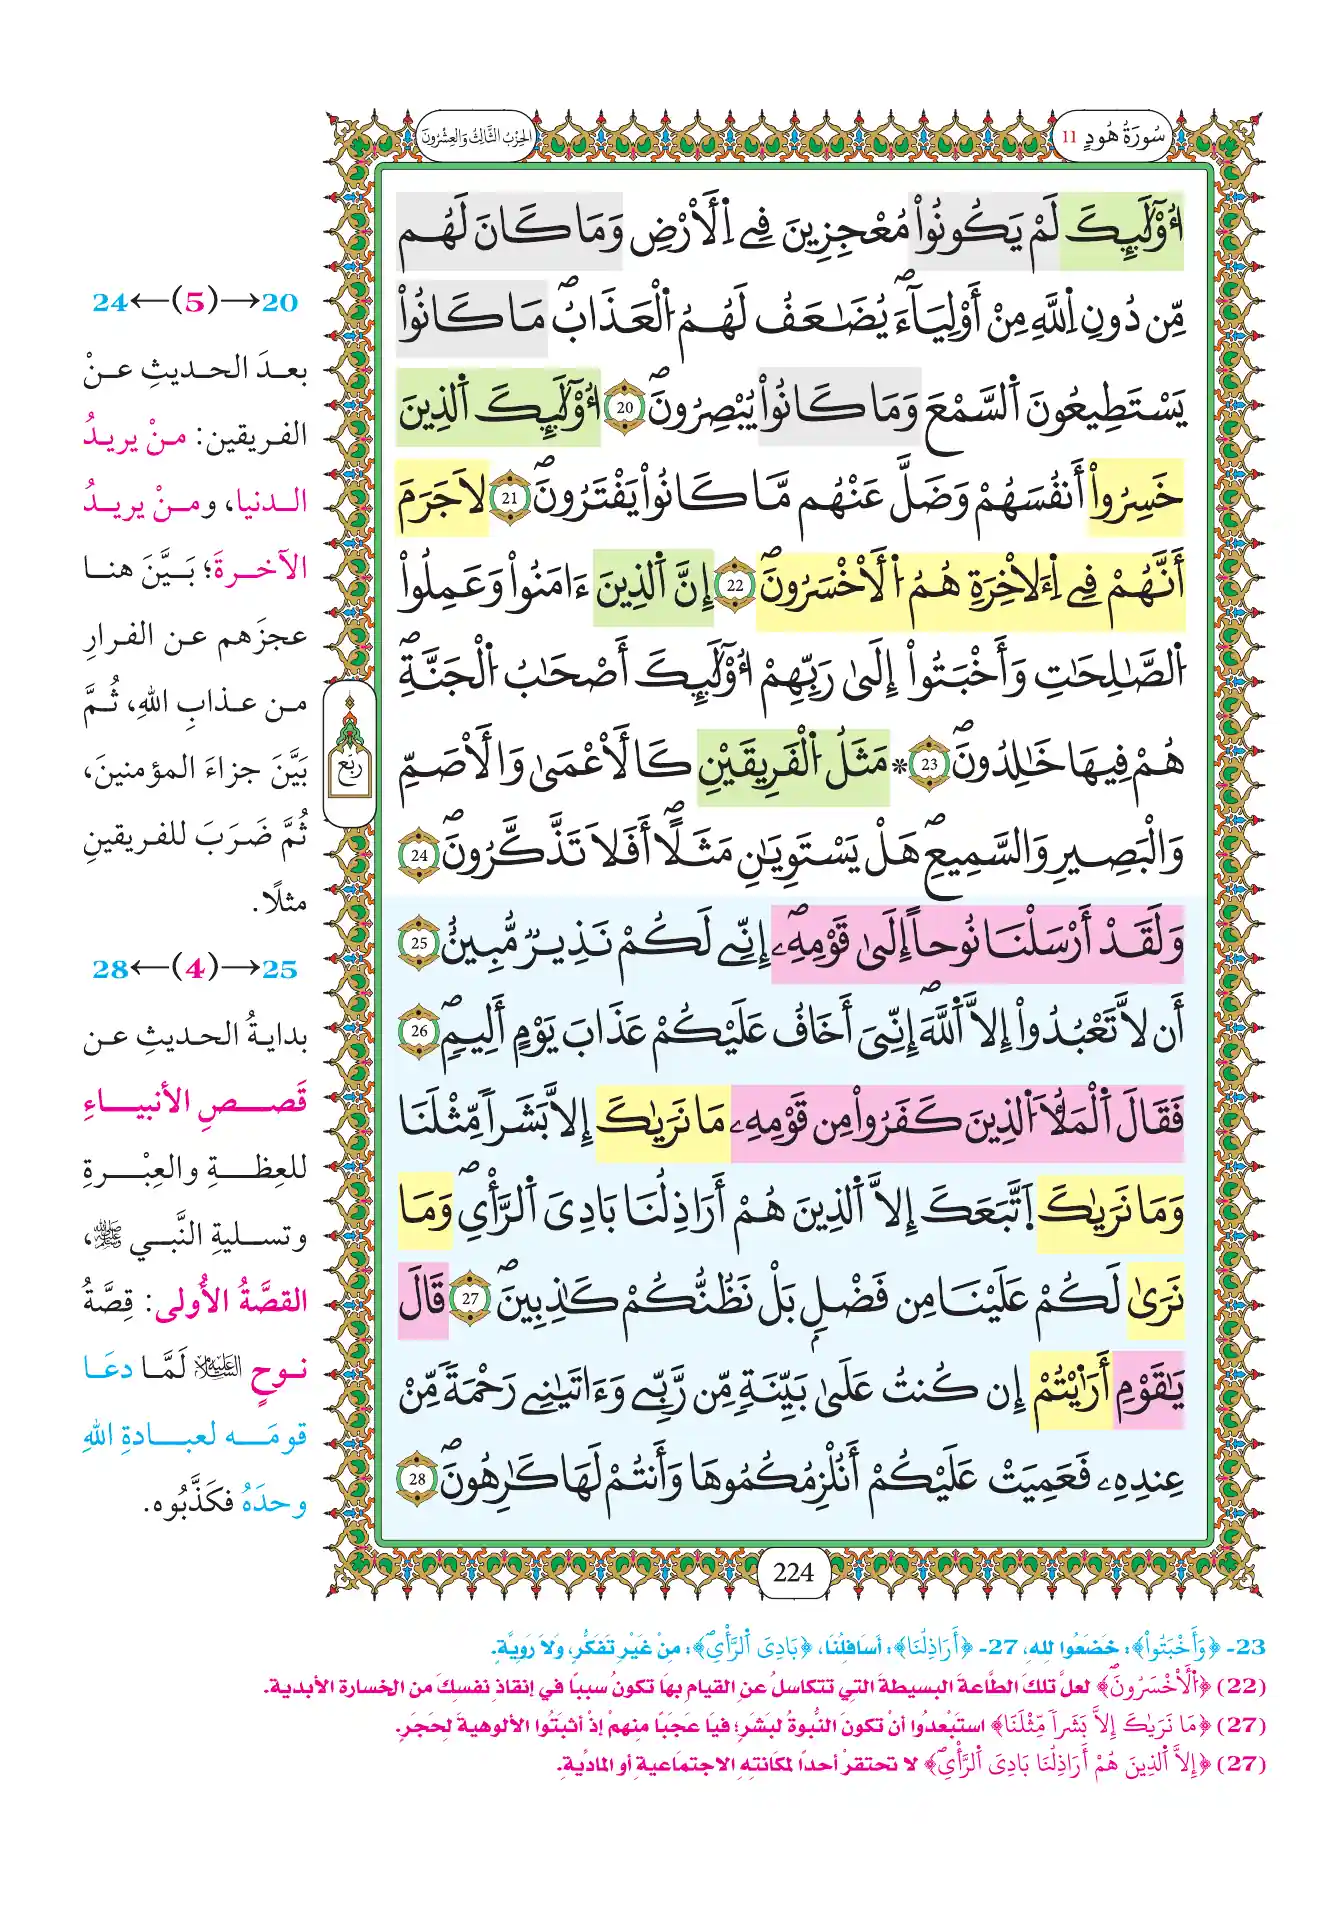 سُورَةُ هُودٍ 11
الحِزْبُ الثَّالِثُ وَالعِشْرُونَ
أُوْلَٰٓئِكَ لَمْ يَكُونُواْ مُعْجِزِينَ فِے اِ۬لَارْضِ وَمَا كَانَ لَهُم
مِّن دُونِ اِ۬للَّهِ مِنْ أَوْلِيَآءَۖ يُضَٰعَفُ لَهُمُ اُ۬لْعَذَابُۖ مَا كَانُواْ
يَسْتَطِيعُونَ اَ۬لسَّمْعَ وَمَا كَانُواْ يُبْصِرُونَۖ 20 أُوْلَٰٓئِكَ اَ۬لذِينَ
خَسِرُواْ أَنفُسَهُمْ وَضَلَّ عَنْهُم مَّا كَانُواْ يَفْتَرُونَۖ 21 لَا جَرَمَ
أَنَّهُمْ فِے اِ۬لَاخِرَةِ هُمُ اُ۬لَاخْسَرُونَۖ 22 إِنَّ اَ۬لذِينَ ءَامَنُواْ وَعَمِلُواْ
اُ۬لصَّٰلِحَٰتِ وَأَخْبَتُواْ إِلَىٰ رَبِّهِمْ أُوْلَٰٓئِكَ أَصْحَٰبُ اُ۬لْجَنَّةِۖ
هُمْ فِيهَا خَٰلِدُونَۖ 23 * مَثَلُ اُ۬لْفَرِيقَيْنِ كَالَاعْمَىٰ وَالَاصَمِّ
وَالْبَصِيرِ وَالسَّمِيعِۖ هَلْ يَسْتَوِيَٰنِ مَثَلًاۖ أَفَلَا تَذَّكَّرُونَۖ 24
وَلَقَدْ أَرْسَلْنَا نُوحاً إِلَىٰ قَوْمِهِۦۖ إِنِّے لَكُمْ نَذِيرٞ مُّبِينٌ 25
أَن لَّا تَعْبُدُواْ إِلَّا اَ۬للَّهَۖ إِنِّيَ أَخَافُ عَلَيْكُمْ عَذَابَ يَوْمٍ أَلِيمٖۖ 26
فَقَالَ اَ۬لْمَلَأُ اُ۬لذِينَ كَفَرُواْ مِن قَوْمِهِۦ مَا نَرَيٰكَ إِلَّا بَشَراٗ مِّثْلَنَا
وَمَا نَرَيٰكَ اَ۪تَّبَعَكَ إِلَّا اَ۬لذِينَ هُمْ أَرَاذِلُنَا بَادِيَ اَ۬لرَّأْيِۖ وَمَا
نَرَىٰ لَكُمْ عَلَيْنَا مِن فَضْلِۢ بَلْ نَظُنُّكُمْ كَٰذِبِينَۖ 27 قَالَ
يَٰقَوْمِ أَرَٰيْتُمْ إِن كُنتُ عَلَىٰ بَيِّنَةٖ مِّن رَّبِّے وَءَاتَيٰنِے رَحْمَةٗ مِّنْ
عِندِهِۦ فَعَمِيَتْ عَلَيْكُمْ أَنُلْزِمُكُمُوهَا وَأَنتُمْ لَهَا كَٰرِهُونَۖ 28
224
ربع
20→(5)←24
بعدَ الحديثِ عنْ
الفريقين: منْ يريدُ
الدنيا، ومنْ يريدُ
الآخرةَ؛ بَيَّنَ هنا
عجزَهم عن الفرارِ
من عذابِ اللهِ، ثُمَّ
بَيَّنَ جزاءَ المؤمنينَ،
ثُمَّ ضَرَبَ للفريقينِ
مثلًا.
25→(4)←28
بدايةُ الحديثِ عن
قَصصِ الأنبياءِ
للعِظةِ والعِبْرةِ
وتسليةِ النَّبي ﷺ،
القصَّةُ الأُولى: قِصَّةُ
نوحٍ عليه السلام لَمَّا دعَا
قومَه لعبادةِ اللهِ
وحدَهُ فكَذَّبُوه.
23- ﴿وَأَخْبَتُواْ﴾: خَضَعُوا للهِ، 27- ﴿أَرَاذِلُنَا﴾: أسَافِلُنَا، ﴿بَادِيَ اَ۬لرَّأْيِۖ﴾: منْ غَيْرِ تَفَكُّرٍ، وَلَا رَوِيَّةٍ.
(22) ﴿اُ۬لَاخْسَرُونَۖ﴾ لعلَّ تلكَ الطَّاعةَ البسيطةَ التِي تتكاسلُ عنِ القيامِ بهَا تكونُ سببًا في إنقاذِ نفسِكَ من الخسارة الأبدية.
(27) ﴿مَا نَرَيٰكَ إِلَّا بَشَراٗ مِّثْلَنَا﴾ استَبْعدُوا أنْ تكونَ النُّبوةُ لبَشَرٍ؛ فيَا عَجَبًا منهمْ إذْ أثبتُوا الألوهيةَ لحَجَرٍ.
(27) ﴿إِلَّا اَ۬لذِينَ هُمْ أَرَاذِلُنَا بَادِيَ اَ۬لرَّأْيِۖ﴾ لا تحتقرْ أحدًا لمكانتهِ الاجتماعيةِ أو المادِّيةِ.